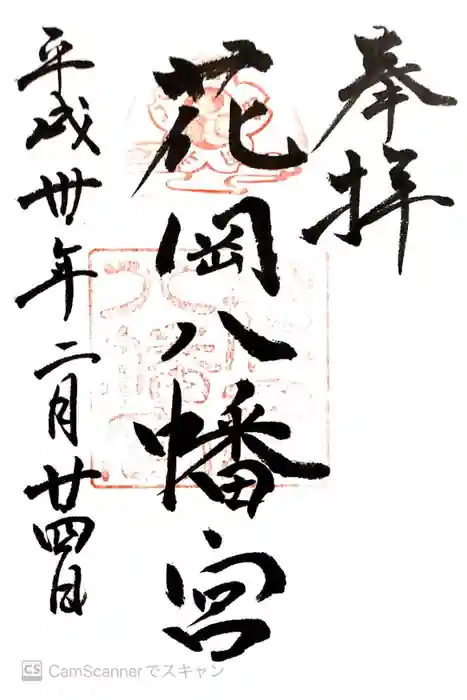 奉拝
花岡八幡宮
平成卅年二月廿四日
CS CamScannerでスキャン